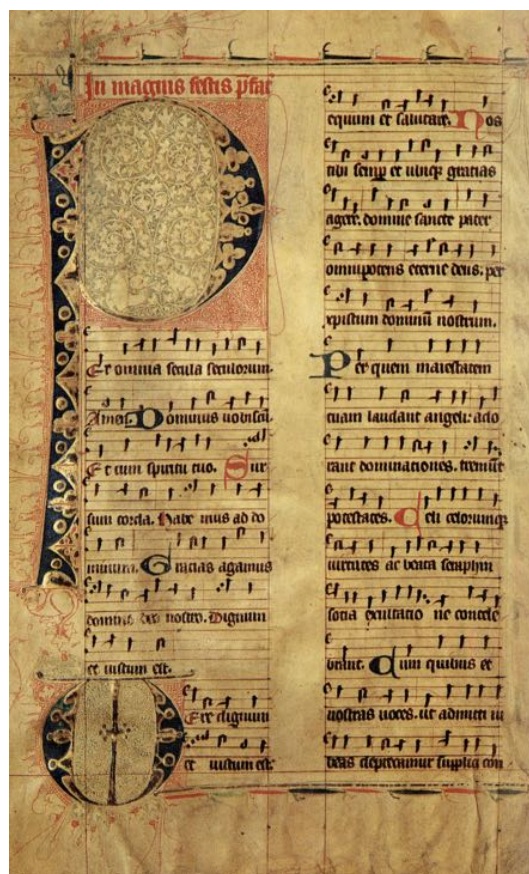 In magnis festis p̄fac
P
Er omnia secula seculorum.
Amen. Dominus uobiscū.
Et cum spiritu tuo. Sur
sum corda. Habe mus ad do
minum. Gratias agamus
domino deo nostro. Dignum
et iustum est.
Ere dignum
et iustum est.
equum et salutare. Nos
tibi semp et ubiqꝫ gratias
agere. domine sancte pater
omnipotens eterne deus. per
xpistum dominū nostrum.
Per quem maiestatem
tuam laudant angeli. ado
rant dominationes. tremūt
potestates. Celi celorumqꝫ
uirtutes ac beata seraphin
socia exultatio ne concele
brant. Cum quibus et
nostras uoces. ut admitti iu
beas deprecamur supplici con